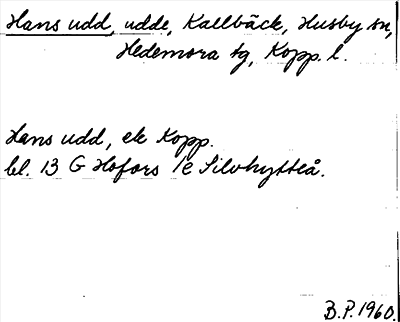 Hans udd, udde, Kallbäck, Husby sn,
Hedemora tg, Kopp. l.
Hans udd, ek Kopp.
bl. 13 G Hofors 1e Silvhytteå.
B.P. 1960.